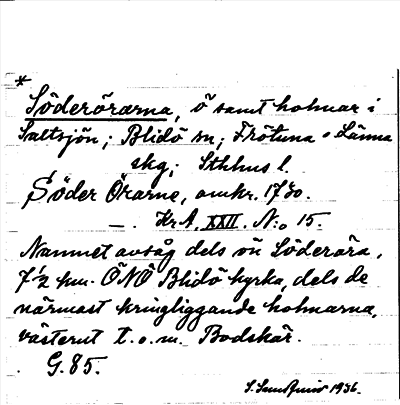 *
Söderörarna, ö samt holmar i
Saltsjön; Blidö sn; Frötuna o Länna
skg; Sthlms l.
Söder Örarne, omkr. 1730.
— . Kr.A. XXII. N:o 15.
Namnet avsåg dels ön Söderöra,
7½ km. ÖNÖ Blidö kyrka, dels de
närmast kringliggande holmarna,
västerut t.o.m. Bodskär.
G. 85.
1936.